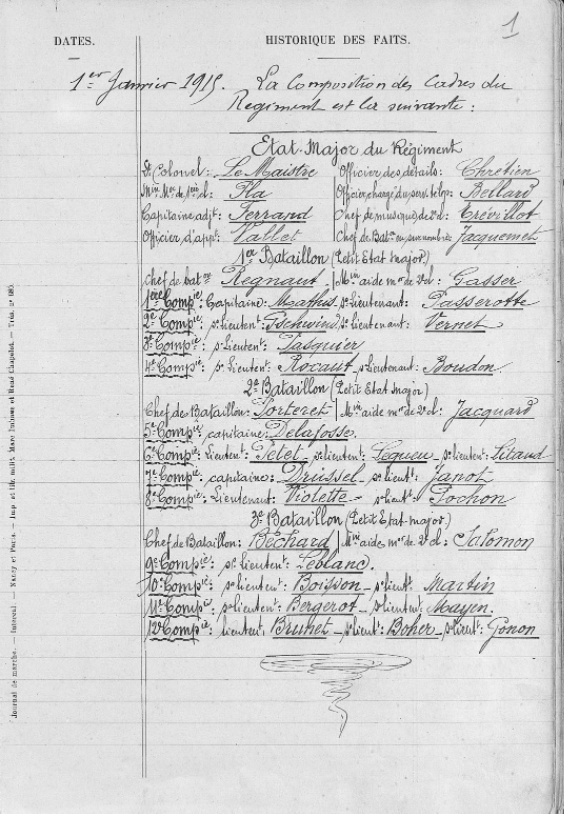 1
DATES.
HISTORIQUE DES FAITS.
1er Janvier 1915. La Composition des cadres du
Régiment est la suivante :
Etat-Major du Régiment
Lt Colonel : Le Maistre Officier des détails : Chrétien
Min. Mor de 1ère cl : Pla Officier chargé du serv. télép : Bellard
Capitaine adjt : Ferrand Chef de musique de 2e cl : Trévillot
Officier d'appt : Vallet Chef de Baton en surnombre Jacquemet
1er Bataillon (Petit Etat major)
Chef de baton Regnaut Min aide mor de 2e cl : Gasser
1ère Compie : Capitaine : Mathis, s/ Lieutenant : Passerotte
2e Compie : s/ Lieutent : Gschwind, s/ Lieutenant : Vernet
3e Compie : s/ Lieutent : Pasquier
4e Compie : s/ Lieutent : Rocaut, s/ Lieutenant : Boudon
2e Bataillon (Petit Etat major)
Chef de Bataillon : Porteret Min aide mor de 2e cl : Jacquard
5e Compie : capitaine : Delafosse.
6e Compie : Lieutent : Pelet, s/ lieutent : Lequeu, s/ lieutent : Litaud
7e Compie : capitaine : Drussel, s/ lieutt : Janot
8e Compie : Lieutenant : Violette, s/ lieutt : Pochon
3e Bataillon (Petit Etat-major.)
Chef de Bataillon : Béchard Min aide mor de 2e cl : Salomon
9e Compie : s/ Lieutent : Leblanc.
10e Compie : s/ lieutent : Boisson, s/ lieutt Martin
11e Compie : s/ lieutent : Bergerot, s/ lieutent : Mayen.
12e Compie lieutent Brunet, s/ lieutt : Boher, s/ lieutt : Gonon
Journal de marche. — Intérieur. — Nancy et Paris. — Imp. et lib. milit. Marc Imhaus et René Chapelot. —